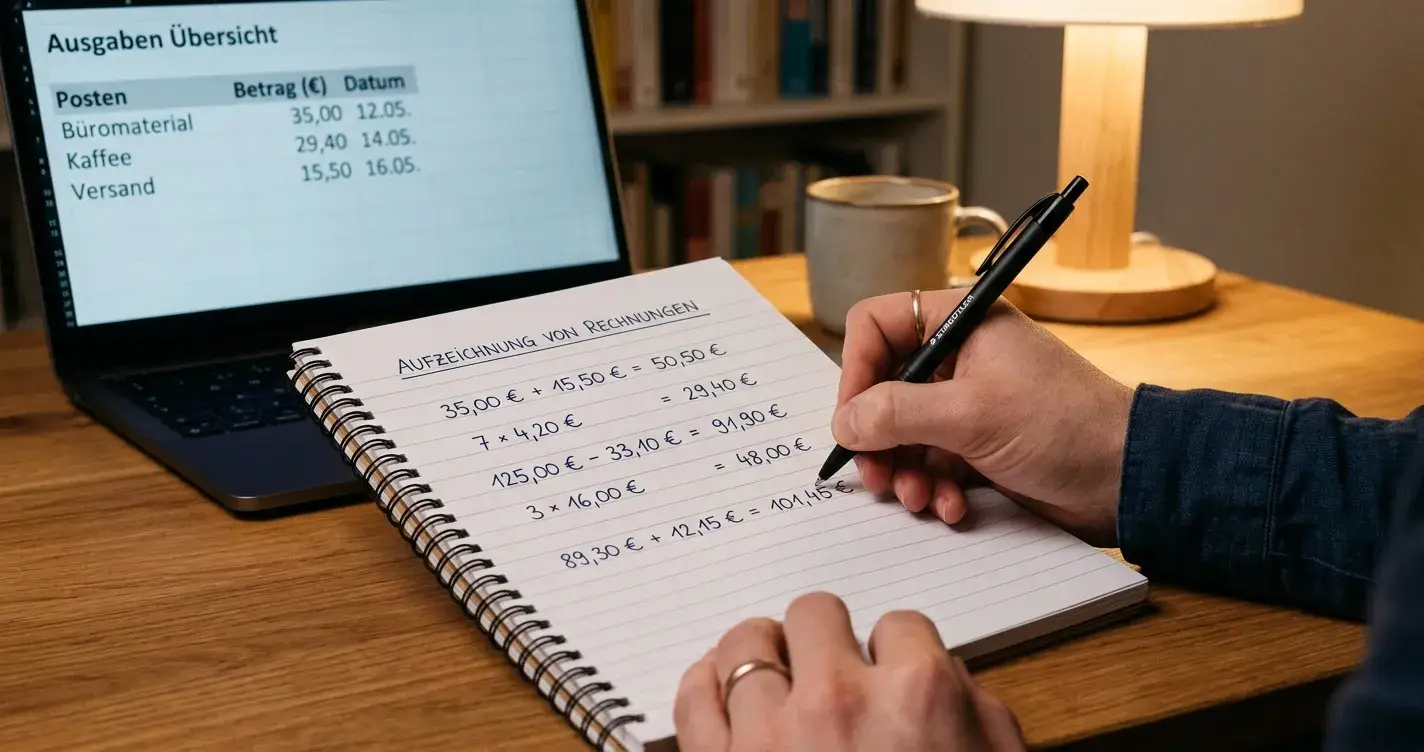 Ausgaben Übersicht
Posten Betrag (€) Datum
Büromaterial 35,00 12.05.
Kaffee 29,40 14.05.
Versand 15,50 16.05.
AUFZEICHNUNG VON RECHNUNGEN
35,00 € + 15,50 € = 50,50 €
7 × 4,20 € = 29,40 €
125,00 € − 33,10 € = 91,90 €
3 × 16,00 € = 48,00 €
89,30 € + 12,15 € = 101,45 €
STAEDTLER